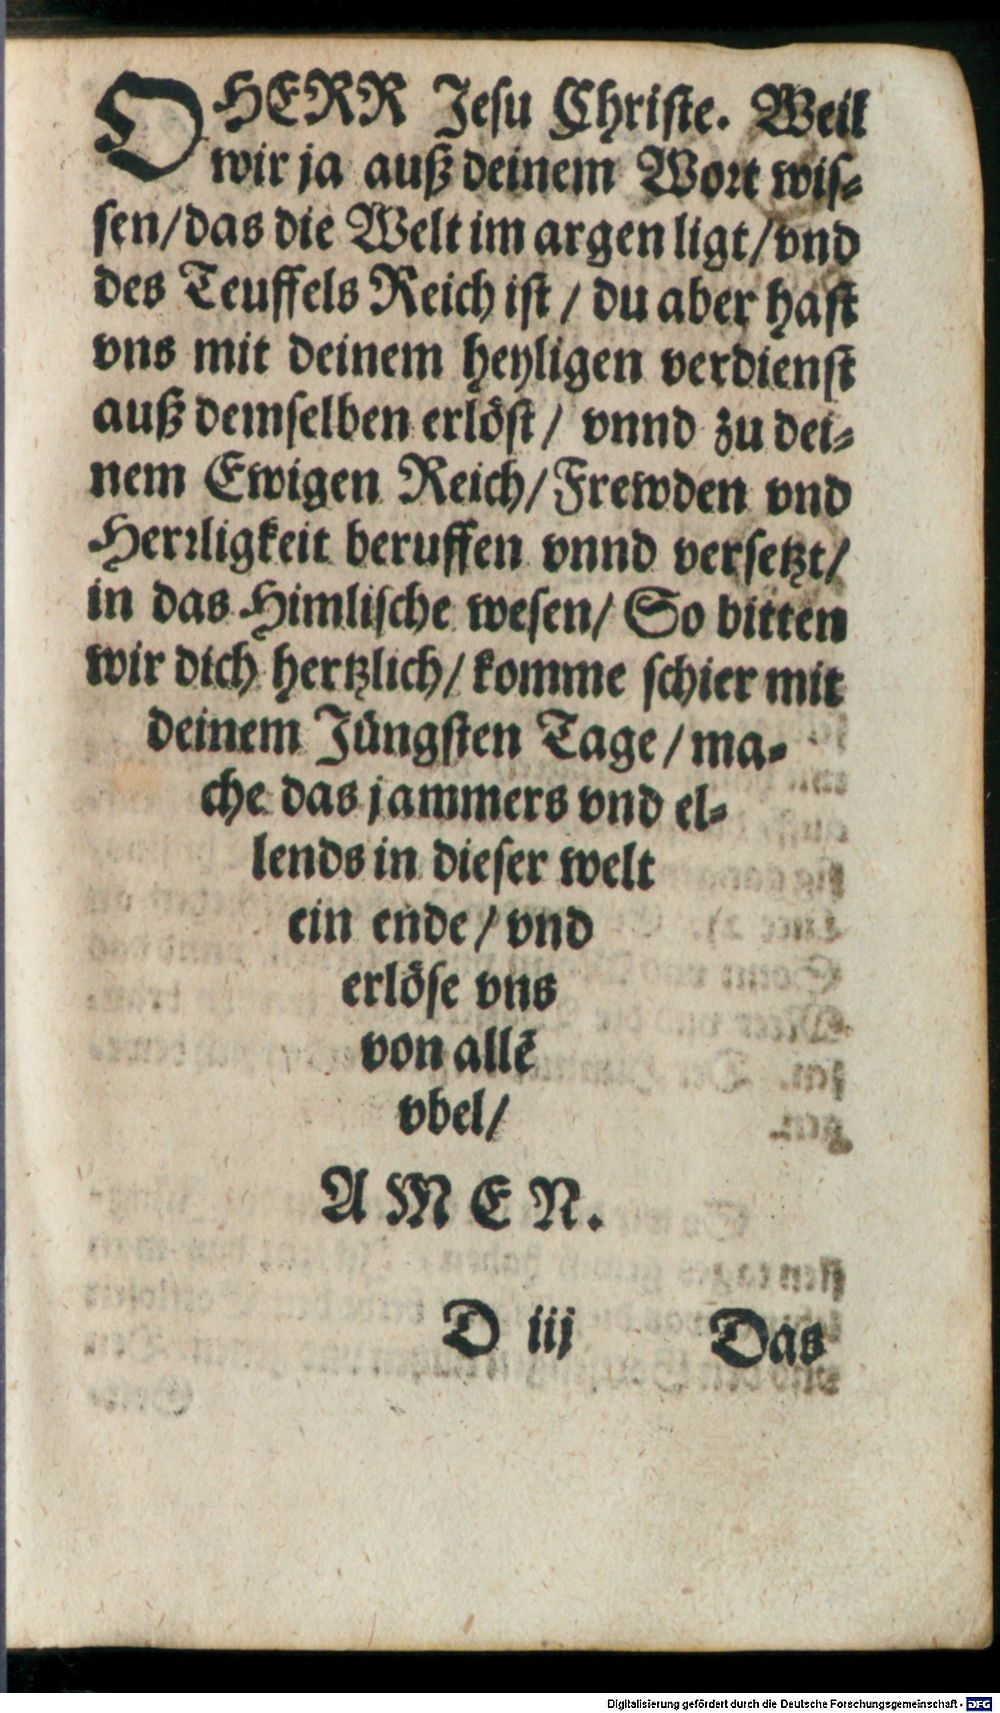 O HERR Jesu Christe. Weil
wir ja auß deinem Wort wis-
sen/das die Welt im argen ligt/vnd
des Teuffels Reich ist / du aber hast
vns mit deinem heyligen verdienst
auß demselben erlöst / vnnd zu dei-
nem Ewigen Reich/Frewden vnd
Herrligkeit beruffen vnnd versetzt/
in das Himlische wesen/ So bitten
wir dich hertzlich/ komme schier mit
deinem Jüngsten Tage/ ma-
che das jammers vnd el-
lends in dieser welt
ein ende/ vnd
erlöse vns
von allē
vbel/
AMEN.
D iij Das
Digitalisierung gefördert durch die Deutsche Forschungsgemeinschaft - DFG